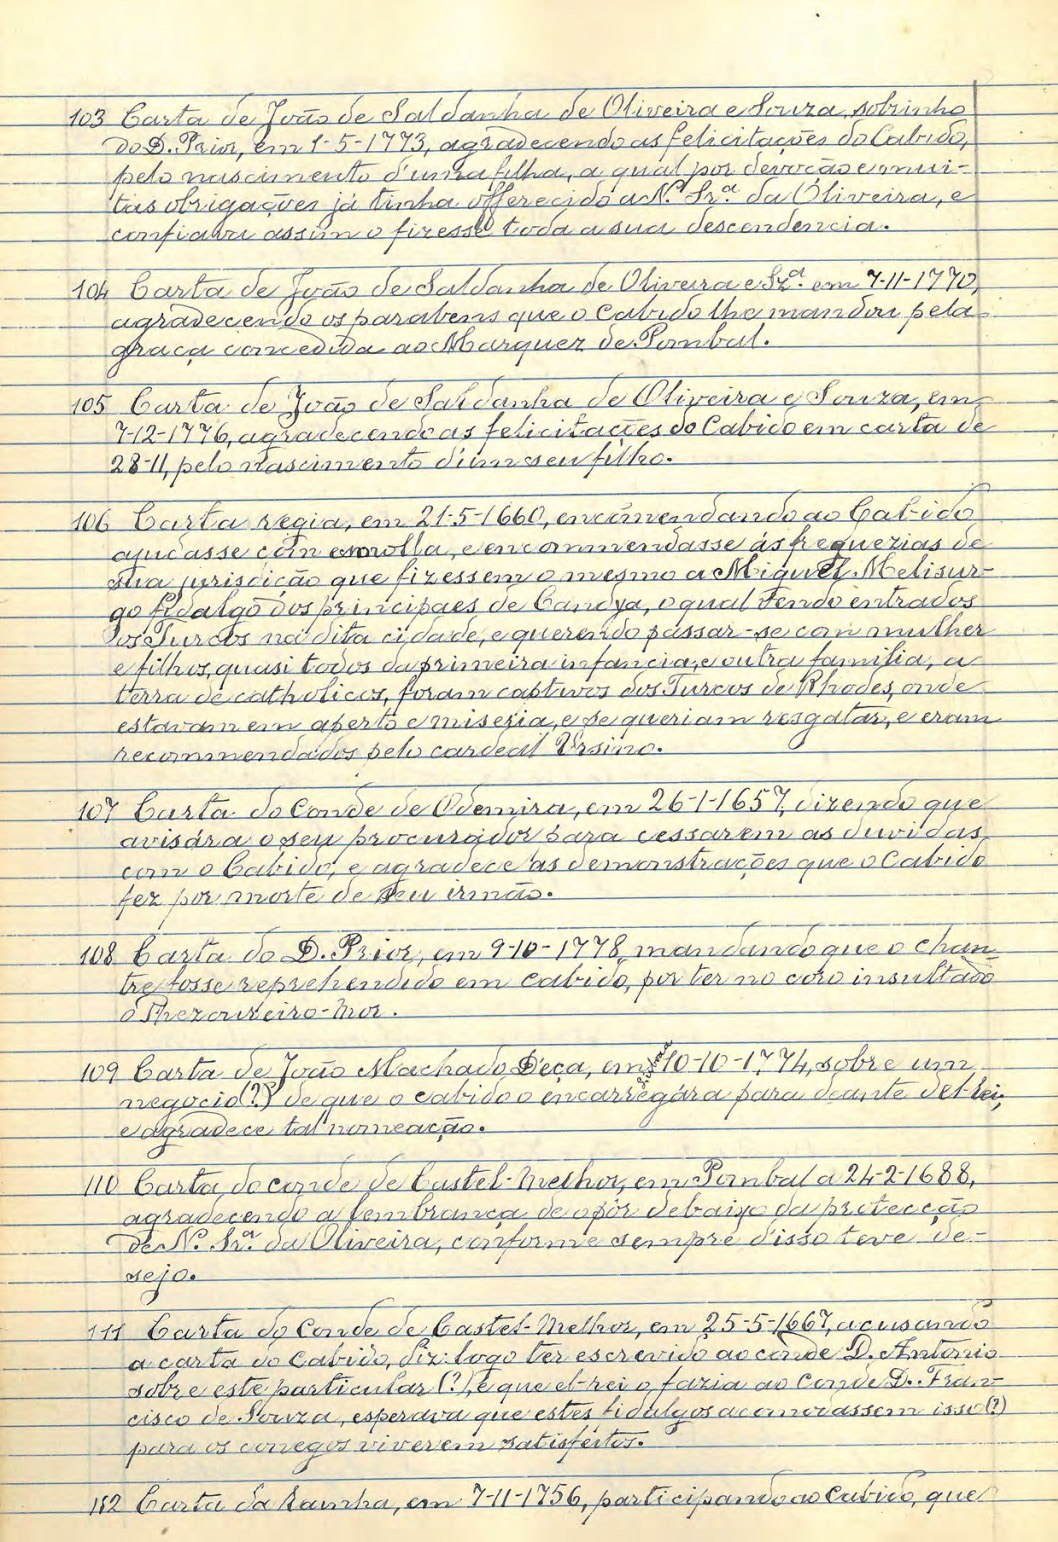 103 Carta de João de Saldanha de Oliveira e Souza, sobrinho
do D. Prior, em 1-5-1773, agradecendo as felicitações do Cabido,
pelo nascimento d'uma filha, a qual por devoção e mui-
tas obrigações já tinha offerecido a N.ª Sr.ª da Oliveira, e
confiava assim o fizesse toda a sua descendencia.
104 Carta de João de Saldanha de Oliveira e Sz.ª em 7-11-1770,
agradecendo os parabens que o Cabido lhe mandou pela
graça concedida ao Marquez de Pombal.
105 Carta de João de Saldanha de Oliveira e Souza, em
7-12-1776, agradecendo as felicitações do Cabido em carta de
28-11, pelo nascimento d'um seu filho.
106 Carta regia, em 21-5-1660, encõmendando ao Cabido
ajudasse com esmolla, e encommendasse ás freguezias de
sua jurisdição que fizessem o mesmo a Miguel Melisur-
go fidalgo dos principaes de Candya, o qual tendo entrados
os Turcos na dita cidade, e querendo passar-se com mulher
e filhos, quasi todos da primeira infancia, e outra familia, a
terra de catholicos, foram captivos dos Turcos de Rhodes, onde
estavam em aperto e miseria, e se queriam resgatar, e eram
recommendados pelo cardeal Ursino.
107 Carta do Conde de Odemira, em 26-1-1657, dizendo que
avisára o seu procurador para cessarem as duvidas
com o Cabido, e agradece as demonstrações que o Cabido
fez por morte de seu irmão.
108 Carta do D. Prior, em 9-10-1778, mandando que o chan-
tre fosse reprehendido em cabido, por ter no coro insultado
o Thezoureiro-Mor.
109 Carta de João Machado D'eça, em Lisboa 10-10-1774, sobre um
negocio (?) de que o cabido o encarregára para deante d'el-rei,
e agradece tal nomeação.
110 Carta do conde de Castel-Melhor, em Pombal a 24-2-1688,
agradecendo a lembrança de o pôr debaixo da protecção
de N.ª Sr.ª da Oliveira, conforme sempre d'isso teve de-
sejo.
111 Carta do Conde de Castel-Melhor, em 25-5-1667, acusando
a carta do Cabido, diz: logo ter escrevido ao conde D. Antonio
sobre este particular (?), e que el-rei o fazia ao Conde D. Fran-
cisco de Souza, esperava que estes fidalgos acomodassem isso (?)
para os conegos viverem satisfeitos.
112 Carta da Rainha, em 7-11-1756, participando ao Cabido, que